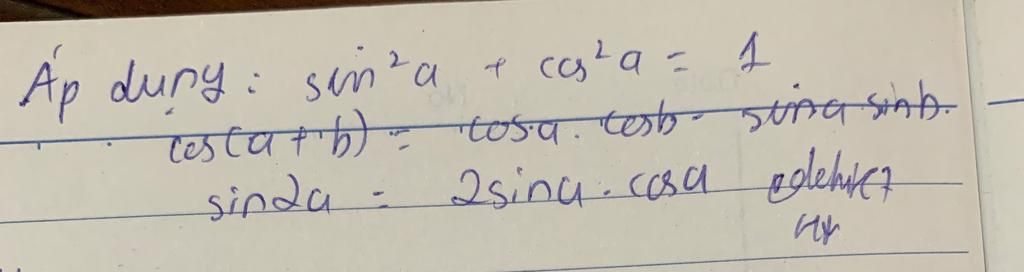 Áp dụng: sin²a + cos²a = 1
cos(a+b) = cosa. cosb - sina sinb.
sin2a = 2sina.cosa